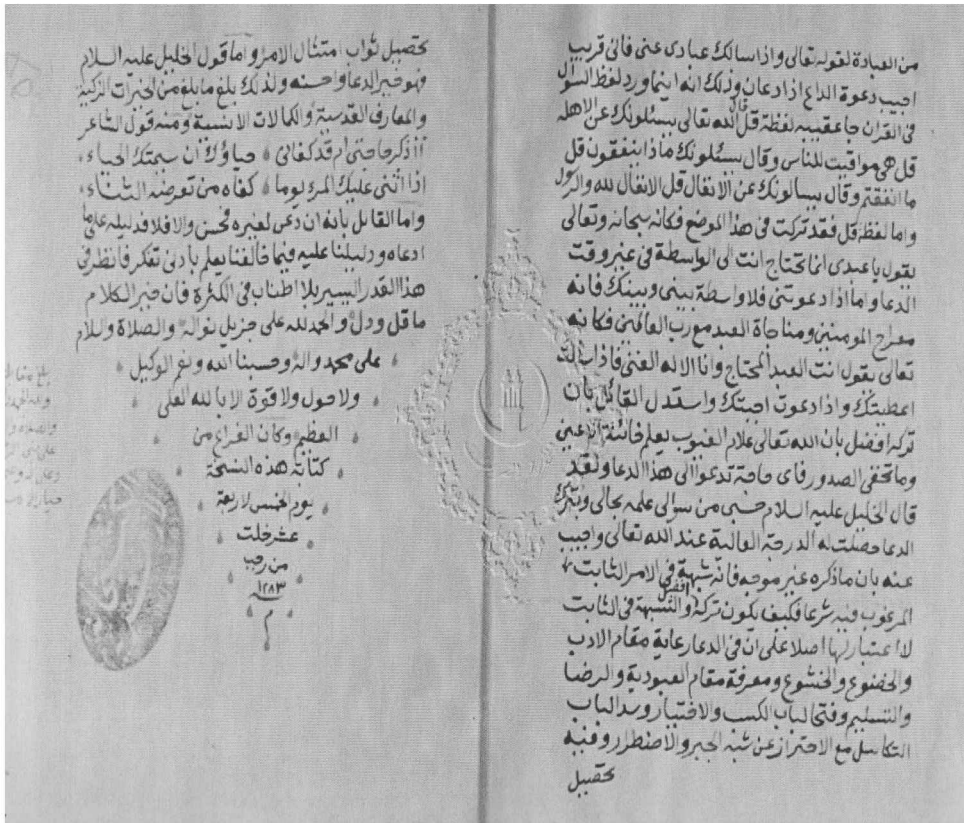 من العبادة لقوله تعالى واذا سالك عبادى عنى فانى قريب
اجيب دعوة الداع اذا دعان وذلك انه اينما ورد لفظ السؤال
فى القران جا عقيبه لفظة قل قال الله تعالى يسئلونك عن الاهله
قل هى مواقيت للناس وقال يسئلونك ماذا ينفقون قل
ما انفقتم وقال يسالونك عن الانفال قل الانفال لله والرسول
واما لفظة قل فقد تركت فى هذا الموضع فكانه سبحانه وتعالى
يقول يا عبدى انما تحتاج انت الى الواسطة فى غير وقت
الدعا واما اذا دعوتنى فلا واسطة بينى وبينك فانه
معراج المومنين ومناجاة العبد مع رب العالمين فكانه
تعالى يقول انت العبد المحتاج وانا الاله الغنى فاذا سالت
اعطيتك واذا دعوت اجبتك واستدل القائل بان
تركه افضل بان الله تعالى علام الغيوب يعلم خائنة الاعين
وما تخفى الصدور فاى حاجة تدعوا الى هذا الدعا ولقد
قال الخليل عليه السلام حسبى من سوالى علمه بحالى وبترك
الدعا حصلت له الدرجة العالية عند الله تعالى واجيب
عنه بان ما ذكره غير موجه فانه شبهة فى الامر الثابت
المرغوب فيه شرعا فكيف يكون تركه افضل والشبهة فى الثابت
لا اعتبار لها اصلا على ان فى الدعا رعاية مقام الادب
والخضوع والخشوع ومعرفة مقام العبودية والرضا
والتسليم وفتحا لباب الكسب والاختيار وسد الباب
التكاسل مع الاحتراز عن شبه الجبر والاضطرار وفيه
تحصيل
تحصيل ثواب امتثال الامر واما قول الخليل عليه السلام
فهو خير الدعا واحسنه ولذلك بلغ ما بلغ من الخيرات الزكية
والمعارف القدسية والكمالات الانسية ومنه قول الشاعر
أاذكر حاجتى ام قد كفانى حياؤك ان سيمتك الحياء
اذا اثنى عليك المرء يوما كفاه من تعرضه الثناء
واما القائل بانه ان دعى لغيره فحسن والا فلا فدليله على ما
ادعاه ودليلنا عليه فيما خالفنا يعلم بادنى تفكر فانظر فى
هذا القدر اليسير بلا اطناب فى الكثرة فان خير الكلام
ما قل ودل والحمد لله على جزيل نواله والصلاة والسلام
على محمد واله وحسبنا الله ونعم الوكيل
ولا حول ولا قوة الا بالله العلى
العظيم وكان الفراغ من
كتابة هذه النسخة
يوم الخميس لاربعة
عشر خلت
من رجب
١٢٨٣
م